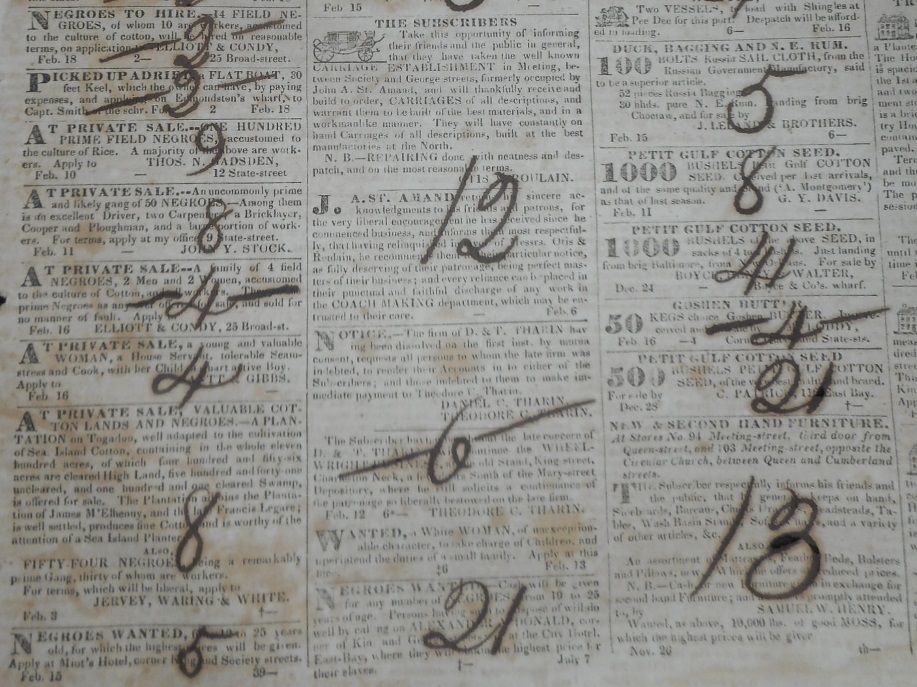 NEGROES TO HIRE.--14 FIELD NE-
GROES, of whom 10 are workers, accustomed
to the culture of cotton, will be hired on reasonable
terms, on application to ELLIOTT & CONDY,
Feb. 18 2— 25 Broad-street.
3
PICKED UP ADRIFT, a FLAT BOAT, 30
feet Keel, which the owner can have, by paying
expenses, and applying on Edmondston's wharf, to
Capt. Smith 2 Feb. 18
AT PRIVATE SALE.--ONE HUNDRED
PRIME FIELD NEGROES, accustomed to
the culture of Rice. A majority of the above are work-
ers. Apply to THOS. N. GADSDEN,
Feb. 10 — 12 State-street
9
AT PRIVATE SALE.--An uncommonly prime
and likely gang of 50 NEGROES--Among them
is an excellent Driver, two Carpenters, a Bricklayer,
Cooper and Ploughman, and a large portion of work-
ers. For terms, apply at my office 9 State-street.
Feb. 11 JOHN Y. STOCK.
8
AT PRIVATE SALE--A family of 4 field
NEGROES, 2 Men and 2 Women, accustomed
to the culture of Cotton,
prime Negroes sold for
no manner of fault. Apply
Feb. 16 ELLIOTT & CONDY, 25 Broad-st.
4
AT PRIVATE SALE, a young and valuable
WOMAN, a House Servant, tolerable Seam-
stress and Cook, with her Child, a smart active Boy.
Apply to GIBBS.
Feb. 16
4
AT PRIVATE SALE, VALUABLE COT-
TON LANDS AND NEGROES.—A PLAN-
TATION on Togadon, well adapted to the cultivation
of Sea Island Cotton, containing in the whole eleven
hundred acres, of which four hundred and fifty-six
acres are cleared High Land, five hundred and forty-one
uncleared, and one hundred and one cleared Swamp,
is offered for sale. The Plantation adjoins the Planta-
tion of James M'Elheany, and that of Francis Legare;
is well settled, produces fine Cotton and is worthy of the
attention of a Sea Island Planter.
ALSO,
FIFTY-FOUR NEGROES being a remarkably
prime Gang, thirty of whom are workers.
For terms, which will be liberal, apply to
JERVEY, WARING & WHITE.
Feb. 3 †—
8
NEGROES WANTED, from 10 to 25 years
old, for which the highest prices will be given.
Apply at Miot's Hotel, corner King and Society streets.
Feb. 15 39—
5
Feb 15
THE SUBSCRIBERS
Take this opportunity of informing
their friends and the public in general,
that they have taken the well known
CARRIAGE ESTABLISHMENT in Meeting, be-
tween Society and George streets, formerly occupied by
John A. St. Amand, and will thankfully receive and
build to order, CARRIAGES of all descriptions, and
warrant them to be built of the best materials, and in a
workmanlike manner. They will have constantly on
hand Carriages of all descriptions, built at the best
manufactories at the North.
N. B.—REPAIRING done with neatness and des-
patch, and on the most reasonable terms.
OTIS & ROULAIN.
12
J. A. ST. AMAND returns his sincere ac-
knowledgments to his friends and patrons, for
the very liberal encouragement he has received since he
commenced business, and informs them most respectful-
ly, that having relinquished Messrs. Otis &
Roulain, he recommends them particular notice,
as fully deserving of their patronage, being perfect mas-
ters of their business; and every reliance can be placed in
their punctual and faithful discharge of any work in
the COACH MAKING department, which may be en-
trusted to their care. — Feb. 6.
NOTICE.—The firm of D. & T. THARIN hav
ing been dissolved on the first inst. by mutual
consent, requests all persons to whom the late firm was
indebted, to render their Accounts in to either of the
Subscribers; and those indebted to them to make im-
mediate payment to Theodore C. Tharin.
DANIEL C. THARIN,
THEODORE C. THARIN.
The Subscriber having the late concern of
D. & T. THARIN continue the WHEEL-
WRIGHT BUSINESS Old Stand, King-street,
Charleston Neck, a South of the Mary-street
Depository, where he will solicits a continuance of
the patronage so liberally bestowed on the late firm.
Feb. 12 6*— THEODORE C. THARIN.
6
WANTED, a White WOMAN, of unexception-
able character, to take charge of Children, and
superintend the duties of a small family. Apply at this
office. †6 Feb. 13
NEGROES WANTED.—Cash will be given
for any number of NEGROES, from 10 to 25
years of age. Persons having such to dispose of will do
well by calling on ALEXANDER M'DONALD, cor-
ner of King and the City Hotel,
East-Bay, where they will the highest price for
their slaves. †— July 7
21
Two VESSELS, to load with Shingles at
Pee Dee for this port. Despatch will be afford-
ed in loading. 6— Feb. 16
DUCK, BAGGING AND N. E. RUM.
100 BOLTS Russia SAIL CLOTH, from the
Russian Government Manufactory, said
to be a superior article.
52 pieces Russia Bagging
30 hhds. pure N. E. Rum, landing from brig
Choctaw, and for sale by
J. LELAND & BROTHERS.
Feb. 15 6—
5
PETIT GULF COTTON SEED.
1000 BUSHELS Petit Gulf COTTON
SEED. Received per last arrivals,
and of the some quality and brand ('A. Montgomery')
as that of last season. G. Y. DAVIS.
Feb. 11
8
PETIT GULF COTTON SEED.
1000 BUSHELS of the above SEED, in
sacks of 4 bushels. Just landing
from brig Baltimore, from For sale by
BOYCE, WALTER,
Dec. 24 — Boyce & Co's. wharf.
4
GOSHEN BUTTER.
50 KEGS choice Goshen BUTTER,
ceived and
Feb 16 —4 State-sts.
4
PETIT GULF COTTON SEED
500 BUSHELS PETIT GULF COTTON
SEED, of the and brand.
For sale by C. PATRICK, East Bay.
Dec. 28 †—
21
NEW & SECOND HAND FURNITURE.
At Stores No. 94 Meeting-street, third door from
Queen-street, and 103 Meeting-street, opposite the
Circular Church, between Queen and Cumberland
streets.
THE Subscriber respectfully informs his friends and
the public, that he generally keeps on hand,
Sideboards, Bureaus, Chairs, Bedsteads, Ta-
bles, Wash Basin Stands, Sofas, and a variety
of other articles, &c.
ALSO
An assortment of Mattresses, Feather Beds, Bolsters
and Pillows, new, which he offers at reduced prices.
N. B. Cash or new Furniture given in exchange for
second hand Furniture; and promptly attended
to, by SAMUEL W. HENRY.
Wanted, as above, 10,000 lbs. of good MOSS, for
which the highest prices will be given
Nov. 26
13